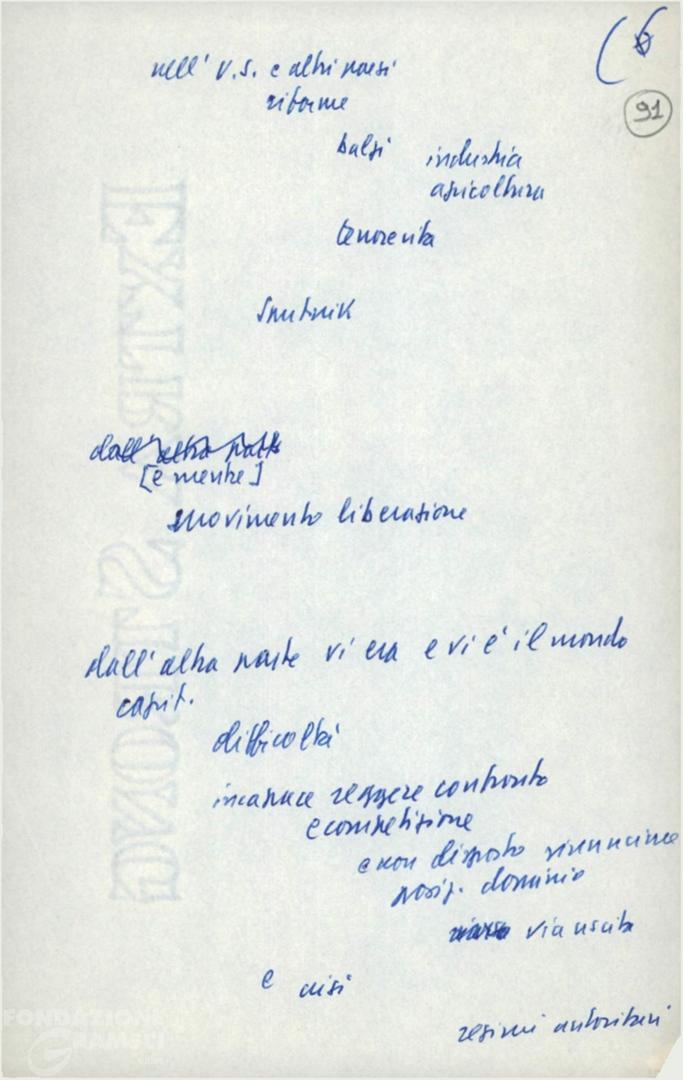 (6
91
nell' U.S. e altri paesi
riforme
balzi industria
agricoltura
tenore vita
Sputnik
dall'altra parte
[e mentre]
movimento liberazione
dall'altra parte vi era e vi è il mondo
capit.
difficoltà
incapace reggere confronto
e competizione
e non disposto rinunciare
posiz. dominio
via uscita
e crisi
regimi autoritari
FONDAZIONE
GRAMSCI
EXTRA STRONG